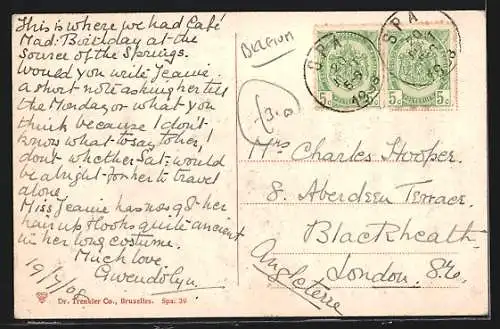 This is where we had Café
Mad: Birthday at the
Source of the Springs.
Would you write Jeanie
a short note asking her till
the Monday or what you
think because I don't
know what to say to her, I
dont whether Sat: would
be alright for her to travel
alone.
Miss Jeanie has now got her
hair up & looks quite ancient
in her long costume.
Much love
Gwendolyn.
19/7/08
Dr. Trenkler Co., Bruxelles. Spa. 39
BELGIUM
SPA
1908
SPA
1908
5 c
5 c
5 c
5 c
3.0
Mrs Charles Hooper.
8. Aberdeen Terrace.
Blackheath.
London. S.E.
Angleterre